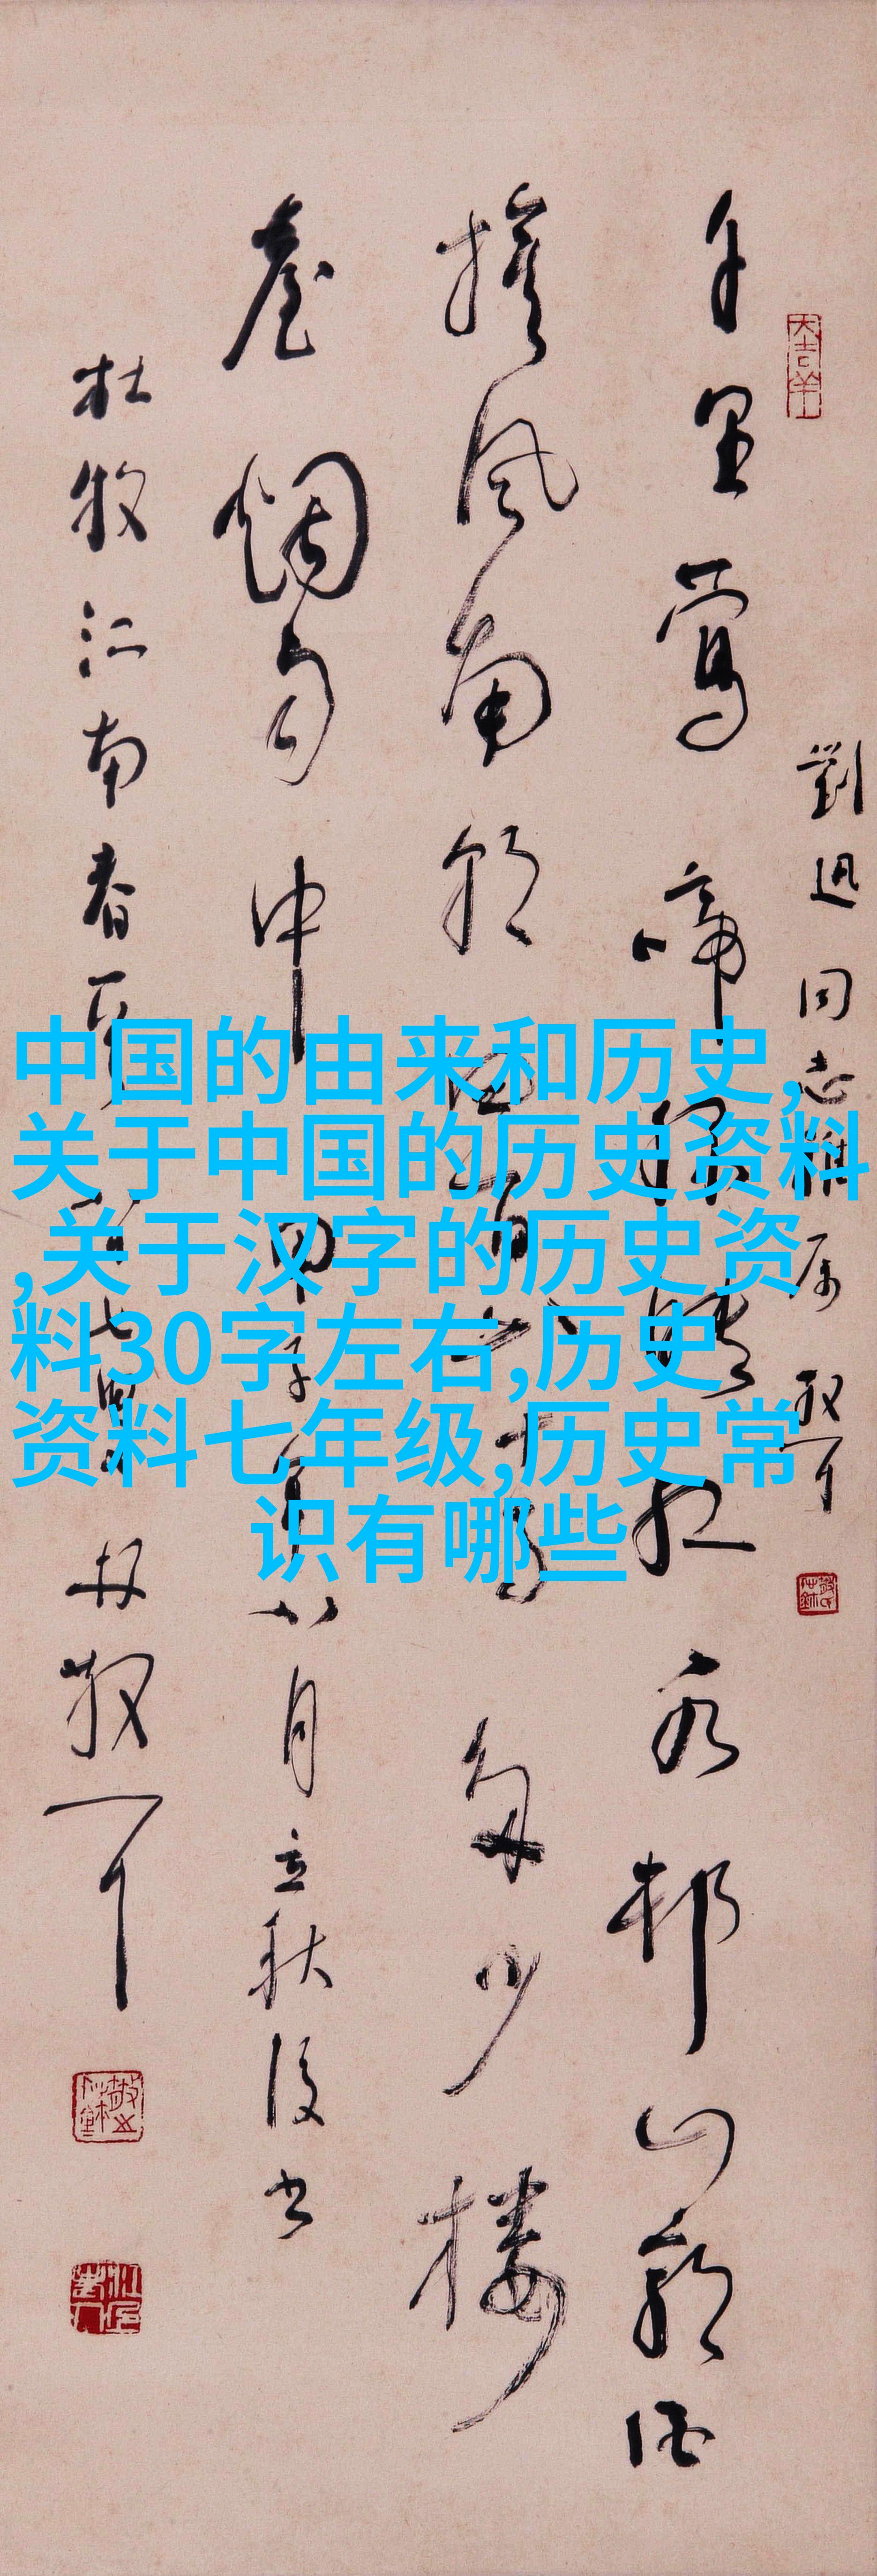 中国的由来和历史,
关于中国的历史资料
,关于汉字的历史资
料30字左右,历史
资料七年级,历史常
识有哪些
大吉羊
劉迅同志雅属
千里鶯啼绿映红水邨山郭酒
旗风南朝四百八十寺多少楼
臺烟雨中
年八月立秋後书
杜牧江南春
林散耳